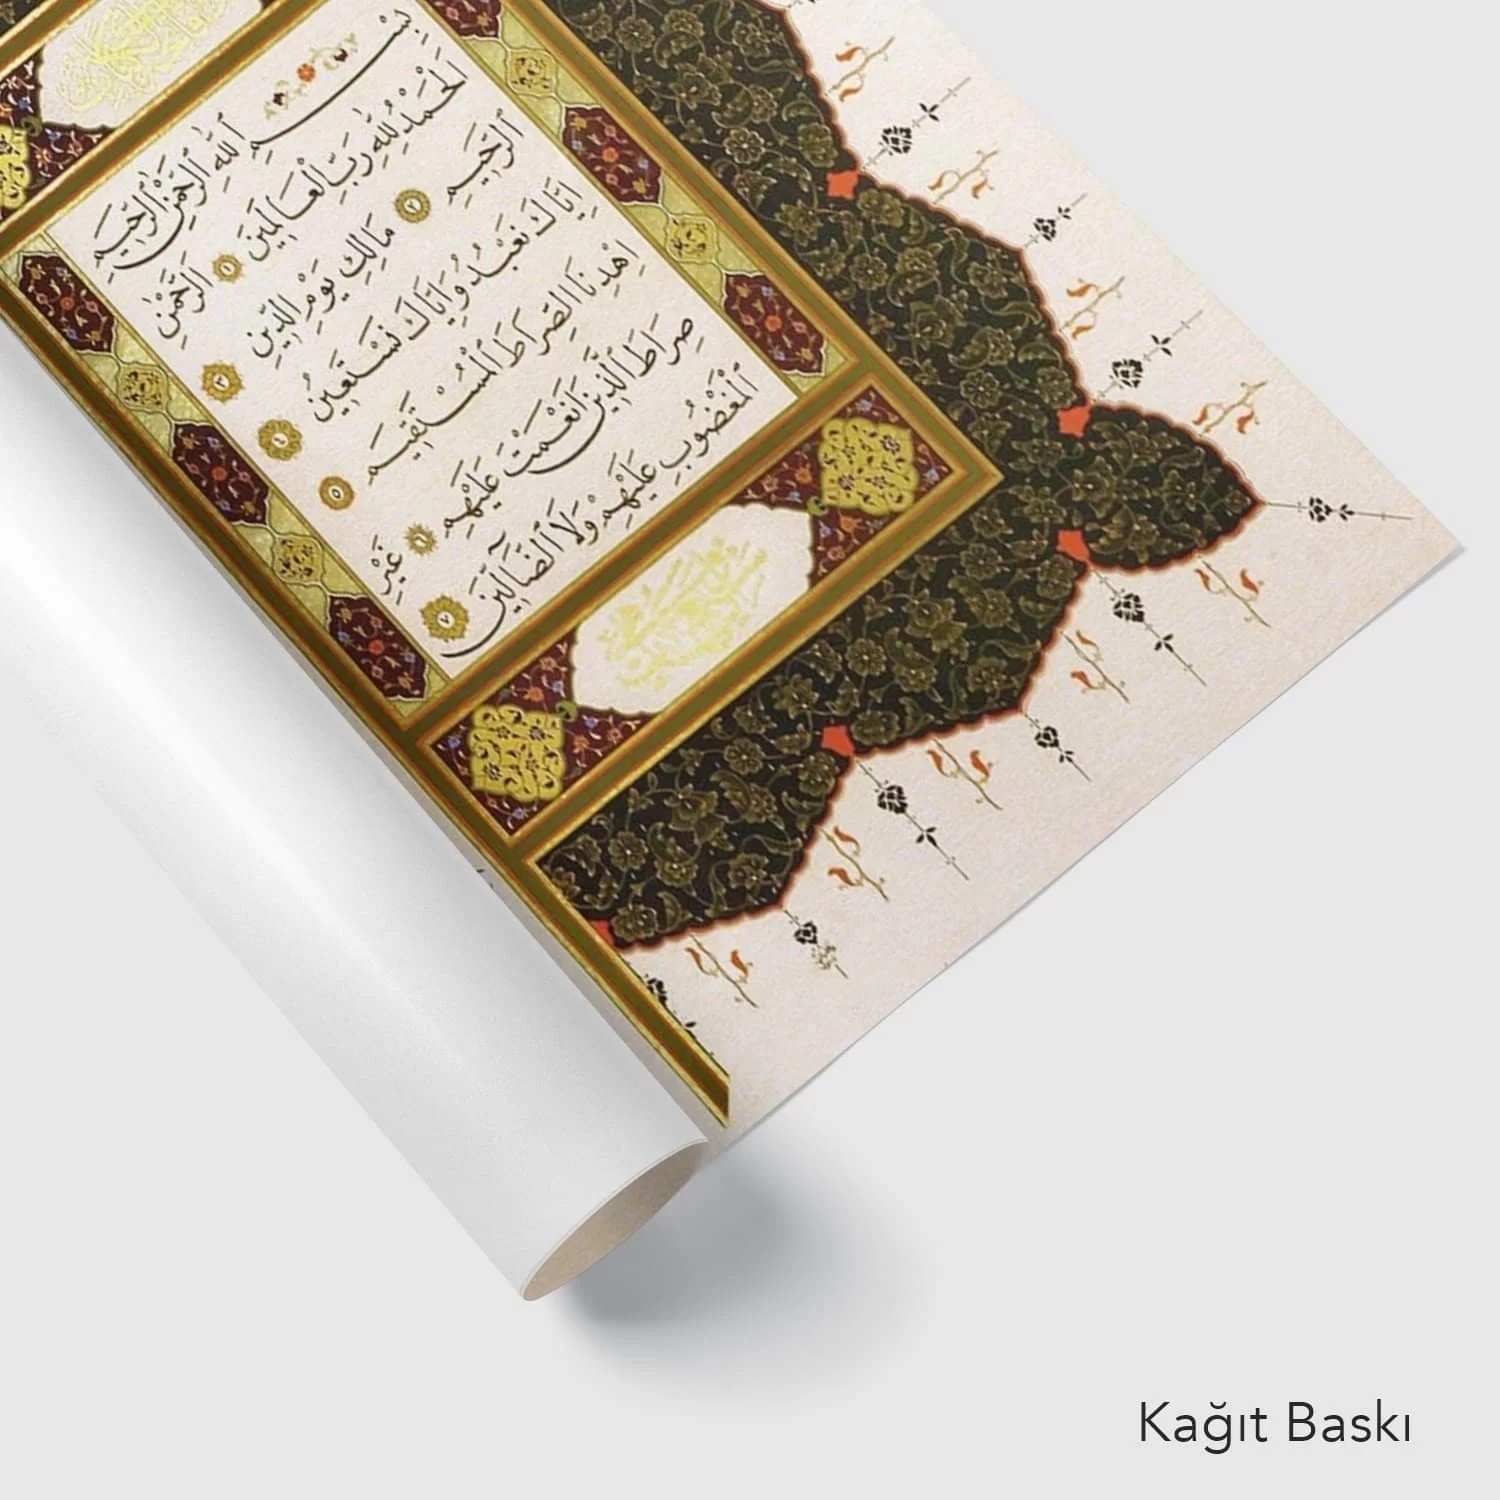 بِسْمِ ٱللّٰهِ ٱلرَّحْمٰنِ ٱلرَّحِيمِ
اَلْحَمْدُ لِلّٰهِ رَبِّ الْعَالَمِينَ ١ اَلرَّحْمٰنِ
ٱلرَّحِيمِ ٢ مَالِكِ يَوْمِ الدِّينِ ٣
اِيَّاكَ نَعْبُدُ وَاِيَّاكَ نَسْتَعِينُ ٤
اِهْدِنَا الصِّرَاطَ ٱلْمُسْتَقِيمَ ٥
صِرَاطَ ٱلَّذِينَ اَنْعَمْتَ عَلَيْهِمْ ٦ غَيْرِ
ٱلْمَغْضُوبِ عَلَيْهِمْ وَلَا ٱلضَّٓالِّينَ ٧
Kağıt Baskı